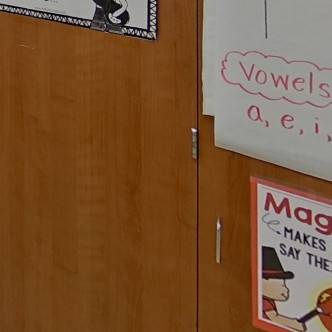 Vowels
a, e, i,
Mag
MAKES
SAY THE